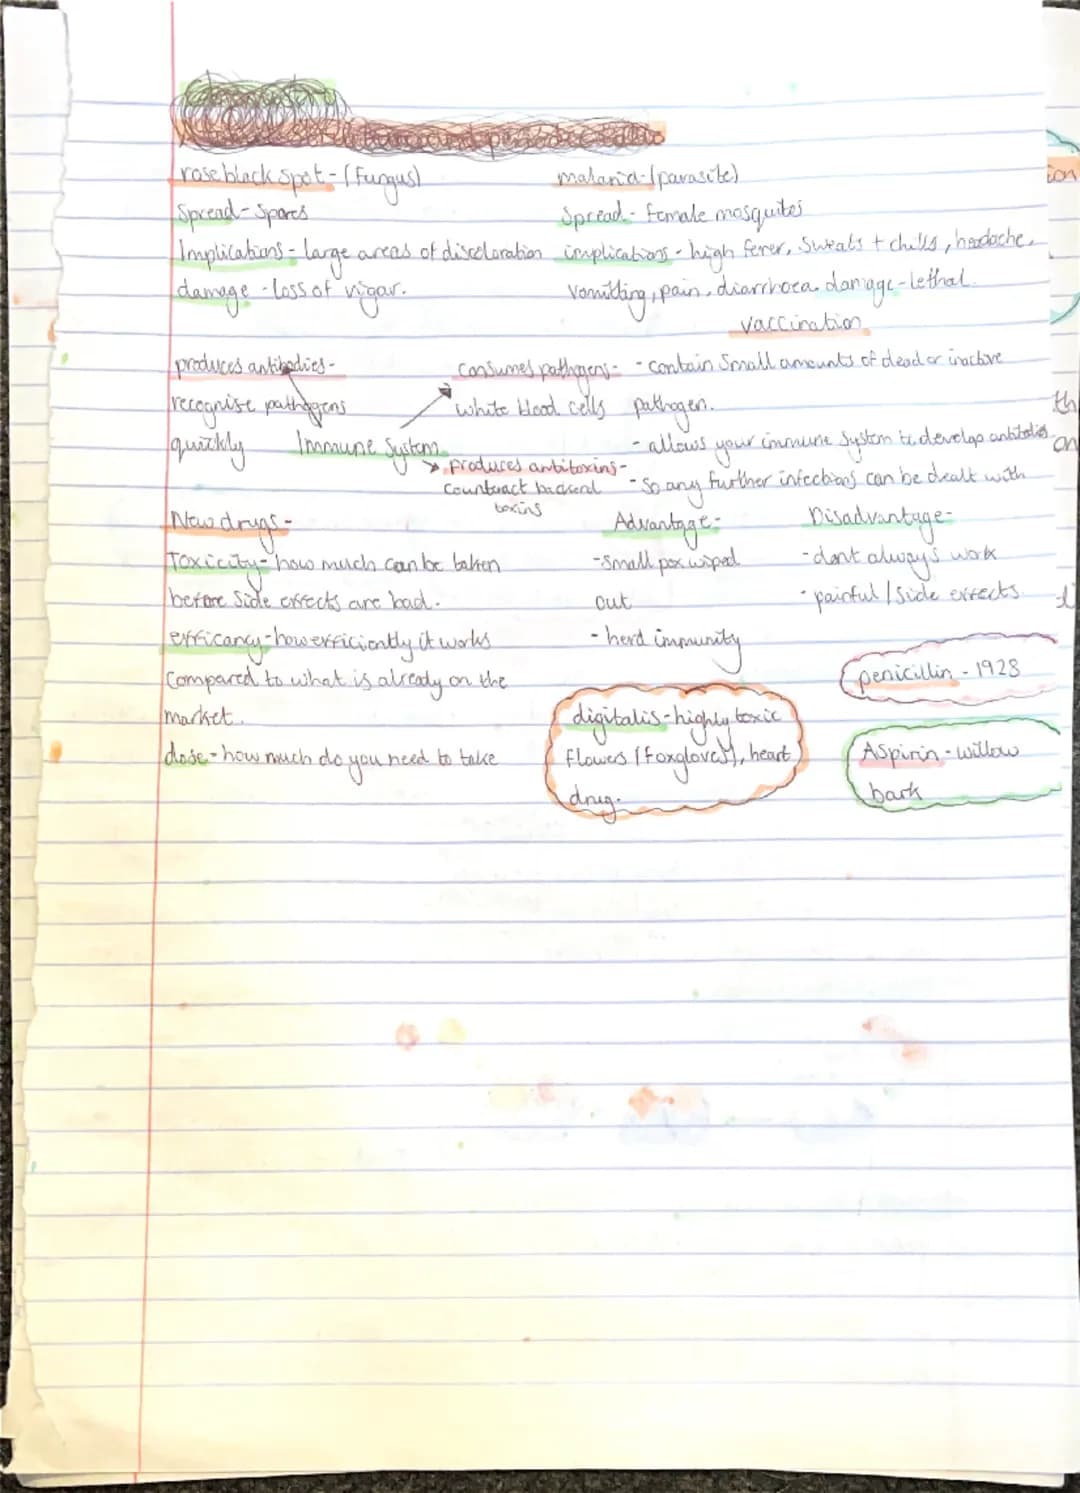 rose black spot - (Fungus)
Spread - Spores
Implications - large areas of discoloration
damage - loss of vigar.
malaria - (parasite)
Spread - female mosquitos
implications - high fever, Sweats + chills, headache,
vomitting, pain, diarrhoea. damage - lethal.
produces antibodies -
recognise pathogens
quickly
Immune System
Consumes pathogens -
white blood cells
Produces antitoxins -
Counteract
toxins
vaccination
- contain Small amounts of dead or inactive
pathogen.
- allows your immune System to develop antibodies
- So any further infections can be dealt with
New drugs -
Toxicity - how much can be taken
before Side effects are bad.
efficancy - how efficiently it works
Compared to what is already on the
market.
dose - how much do you need to take
Advantage -
- Small pox wiped
out
- herd immunity
Disadvantage -
- dont always work
- painful / Side effects
digitalis - highly toxic
flowers (foxgloves), heart
drug.
penicillin - 1928
Aspirin - willow
bark